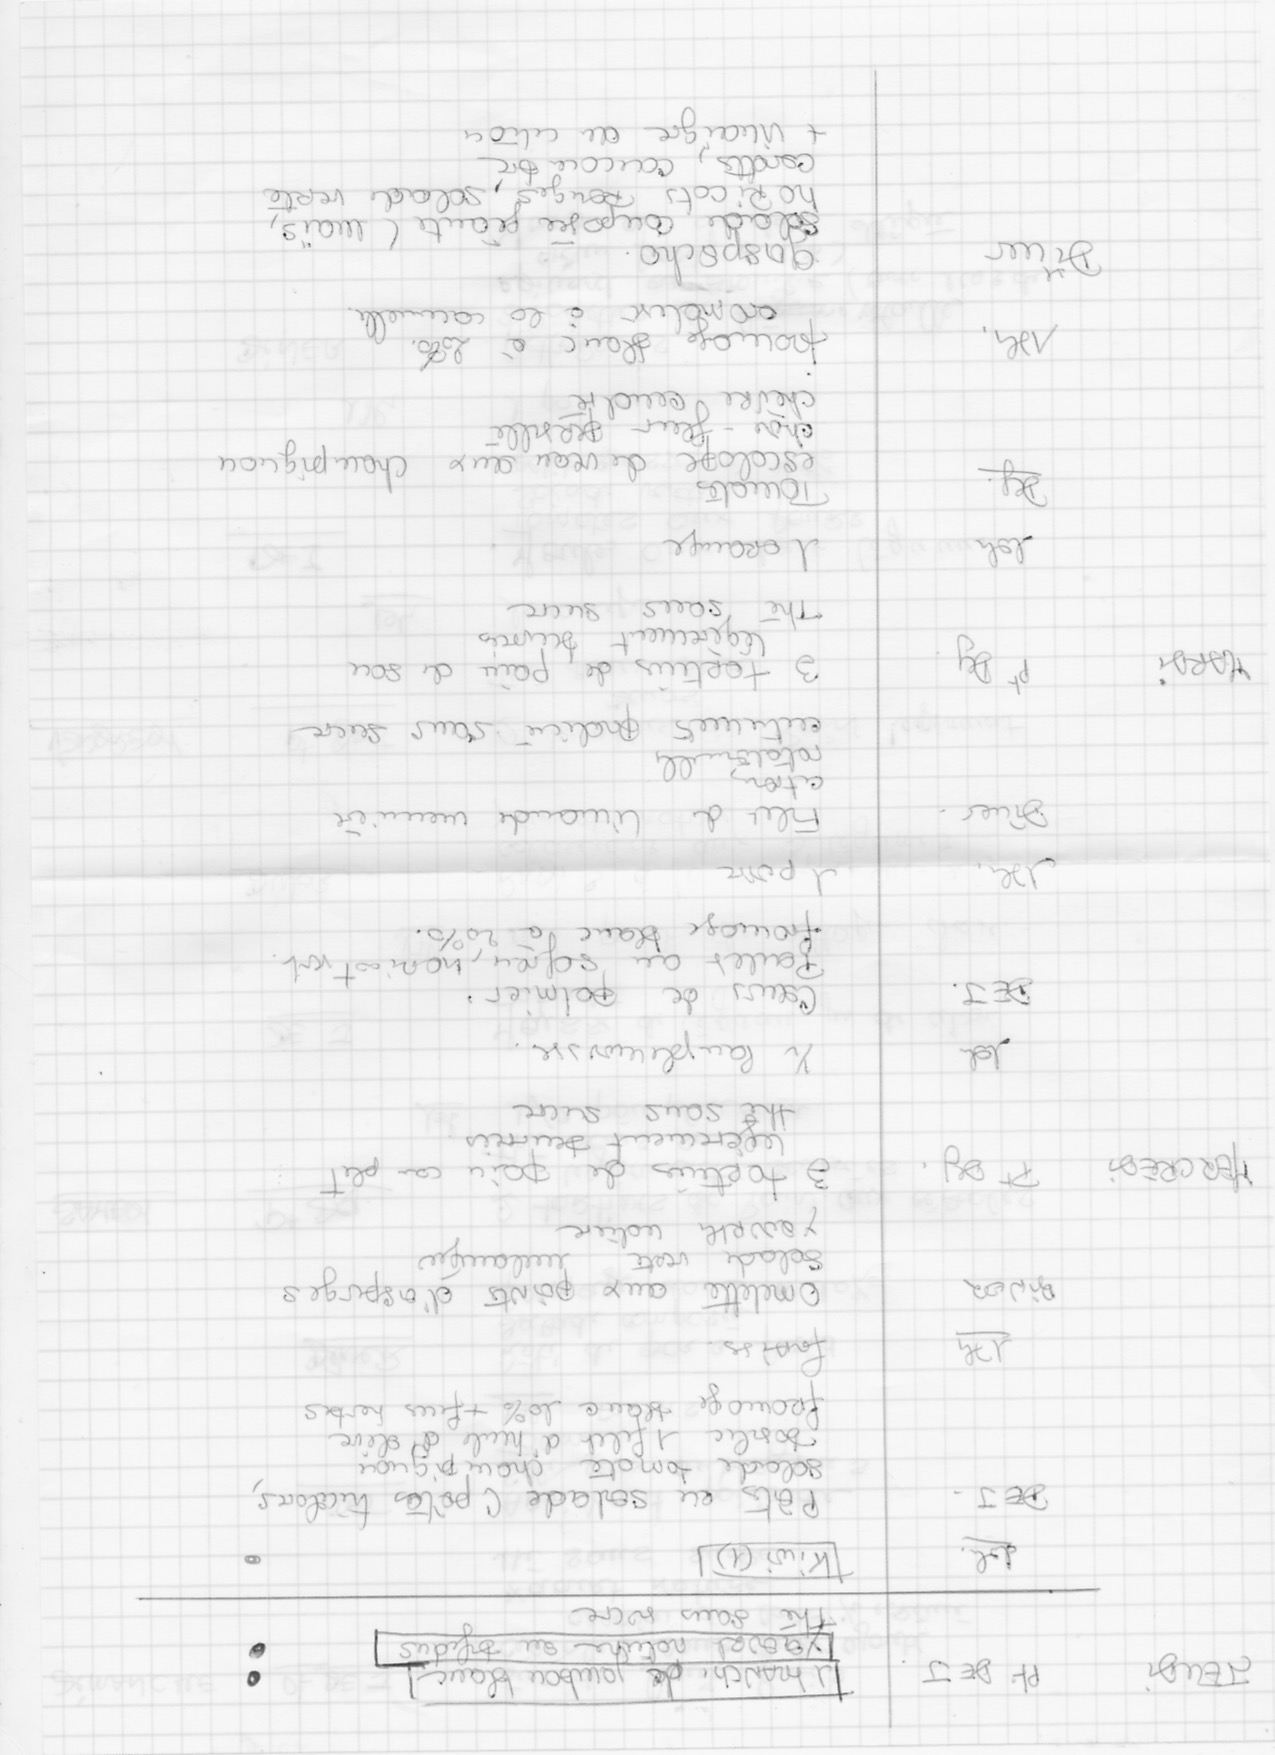 JEUDI
Pt DEJ
1 tranche de jambon blanc
Yaourt nature au bifidus
Thé sans sucre
10h.
Kiwi (1)
DEJ.
Pâtes en salade (pâtes tricolores,
salade tomate champignon
basilic 1 filet d'huile d'olive
fromage blanc 20% + fines herbes
17h
fraises.
DINER
Omelette aux pointes d'asperges
salade verte mélangée
Yaourt nature
MERCREDI
Pt Dej.
3 tartines de pain complet
légèrement beurrées
thé sans sucre
10h
½ pamplemousse.
DEJ.
Coeurs de palmier.
Poulet au safran, haricot vert.
fromage blanc à 20%.
17h.
1 poire
Diner.
Filet de limande meunière
citron,
ratatouille
entremets pralin sans sucre
MARDI
Pt Dej
3 tartines de pain de son
légèrement beurrées
Thé sans sucre
10h
1 orange
Dej.
Tomates
escalope de veau aux champignon
chou-fleur persillé
chèvre
17h.
fromage blanc à 20%.
aromatisé à la cannelle
Diner
Gaspacho.
Salade composée géante (maïs,
haricots rouges, salade verte
carottes, concombre
+ vinaigre ou citron